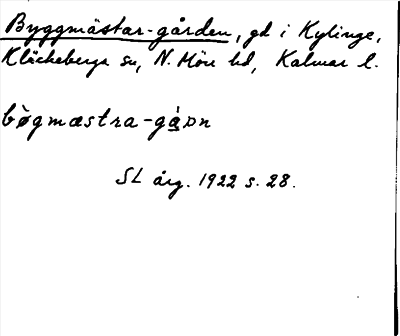 Byggmästar-gården, gd i Kylinge,
Kläckeberga sn, N. Möre hd, Kalmar l.
bògmæstra-gàɒn
SL årg. 1922 s. 28.